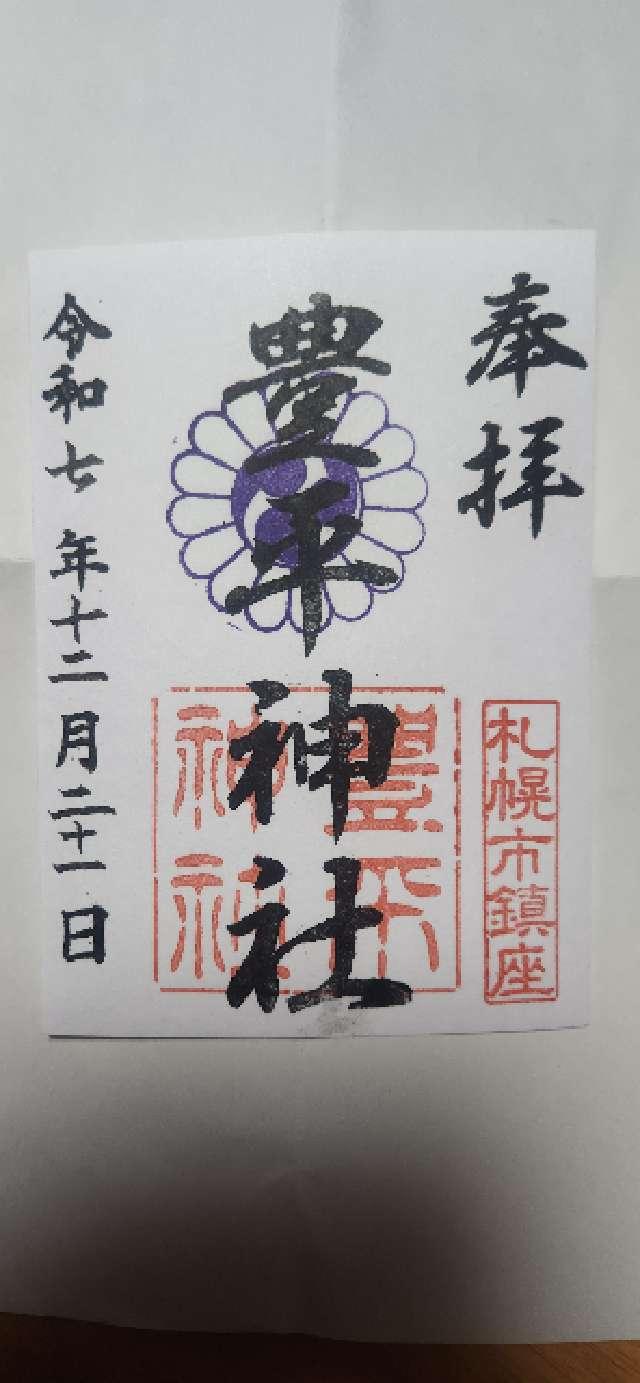 奉拝
札幌市鎮座
豊平神社
豊平神社
令和七年十二月二十一日